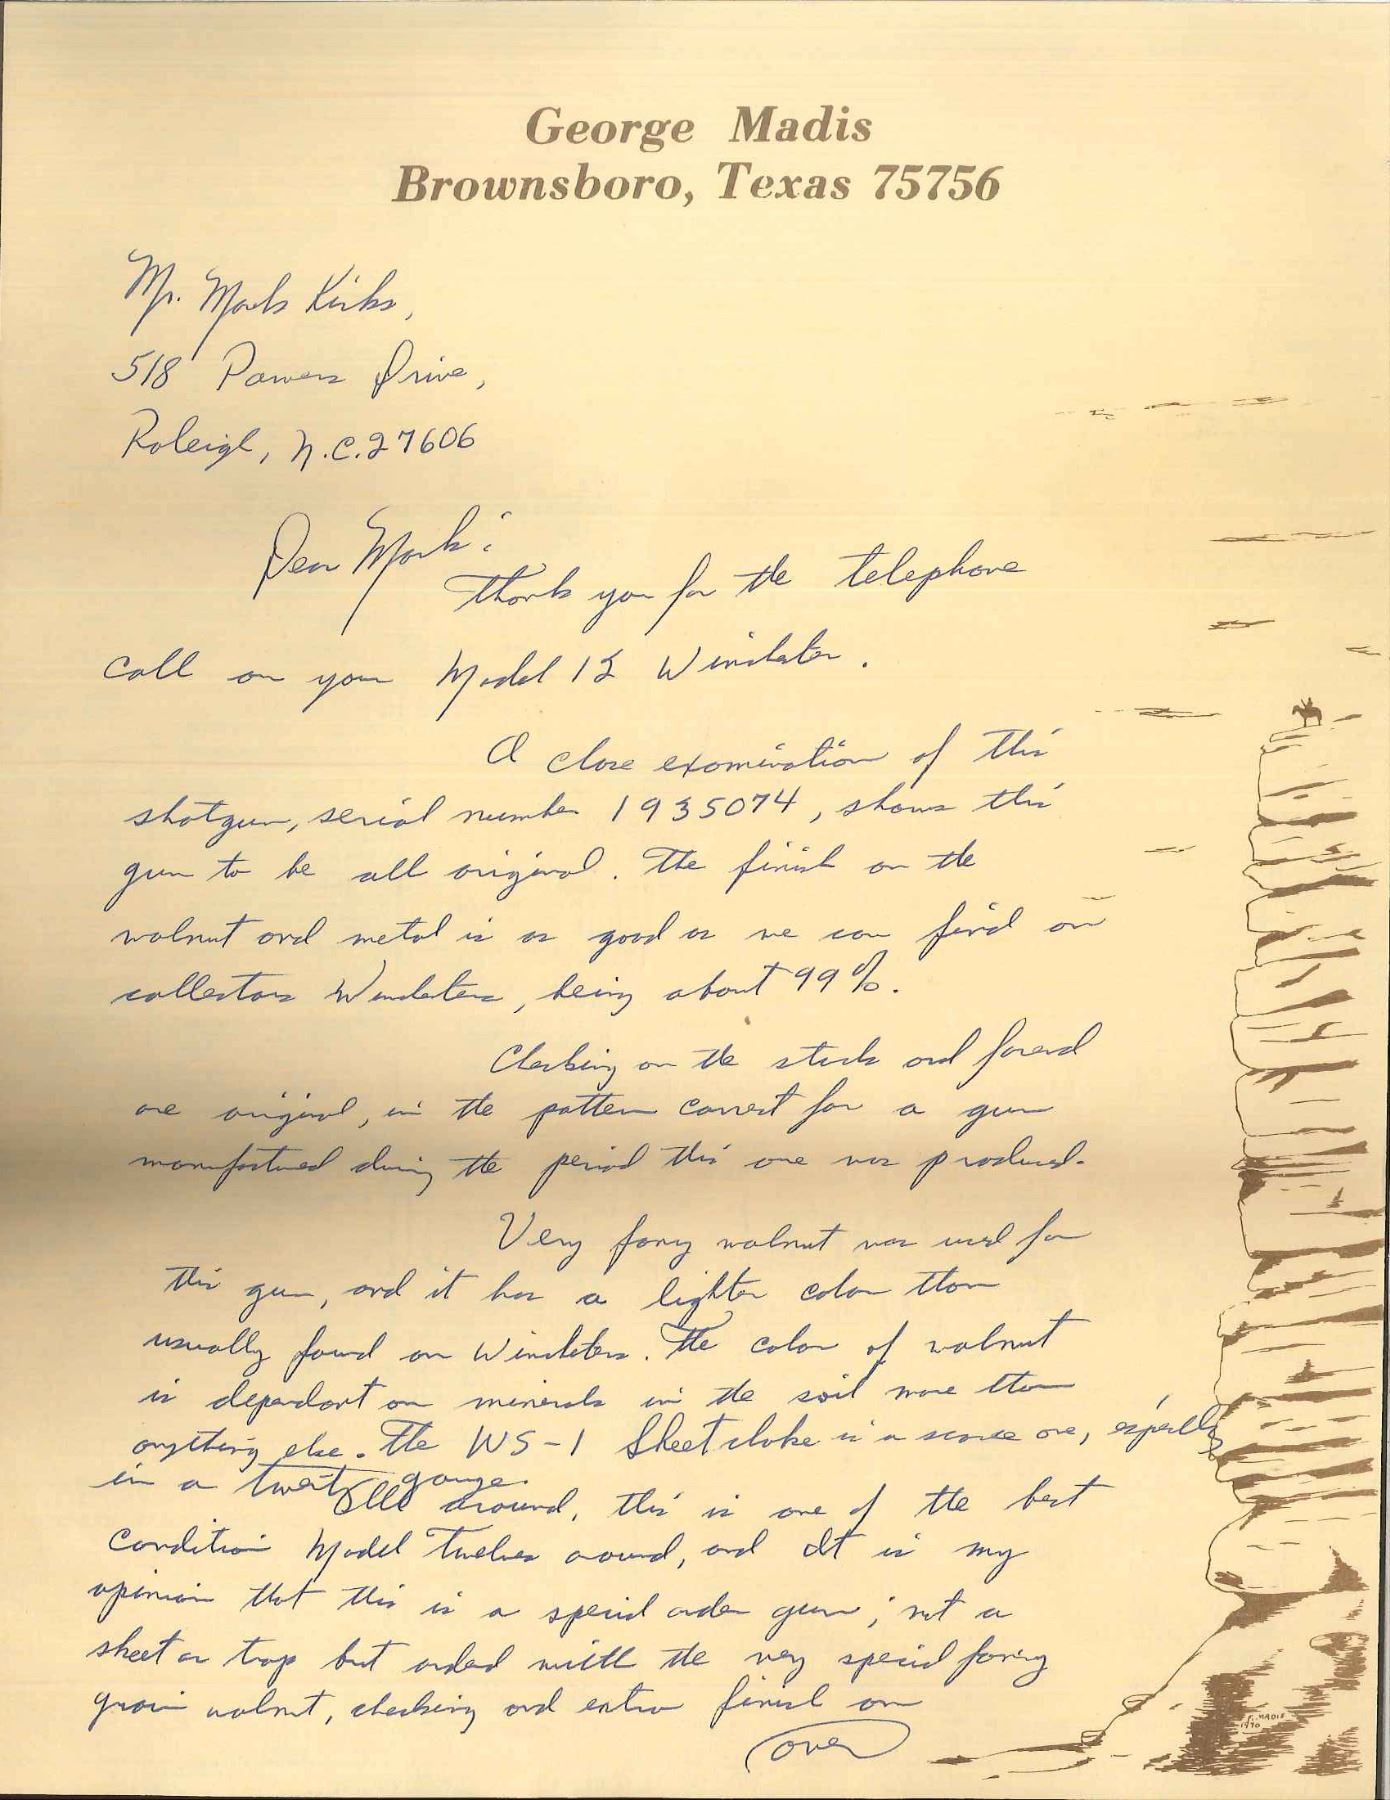 George Madis
Brownsboro, Texas 75756
Mr. Mark Kirks,
518 Powers Drive,
Raleigh, N.C. 27606
Dear Mark:
Thank you for the telephone
call on your Model 12 Winchester.
A close examination of this
shotgun, serial number 1935074, shows this
gun to be all original. The finish on the
walnut and metal is as good as we can find on
collectors Winchesters, being about 99%.
Checking on the stock and forend
are original, in the pattern correct for a gun
manufactured during the period this one was produced.
Very fancy walnut was used for
this gun, and it has a lighter color than
usually found on Winchesters. The color of walnut
is dependant on minerals in the soil more than
anything else. The WS-1 Skeet choke is a scarce one, especially
in a twenty gauge.
All around, this is one of the best
condition Model Twelves around, and It is my
opinion that this is a special order gun; not a
skeet or trap but orded with the very special fancy
grain walnut, checking and extra finish on
over
G. MADIS
1970